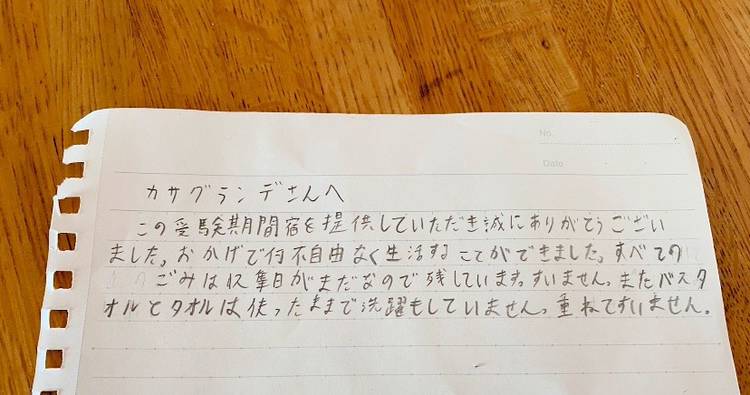 No.
Date
カサグランデさんへ
この受験期間宿を提供していただき誠にありがとうござい
ました。おかげで何不自由なく生活することができました。すべての
ごみは収集日がまだなので残しています。すいません。またバスタ
オルとタオルは使ったままで洗躍もしていません。重ねてすいません。